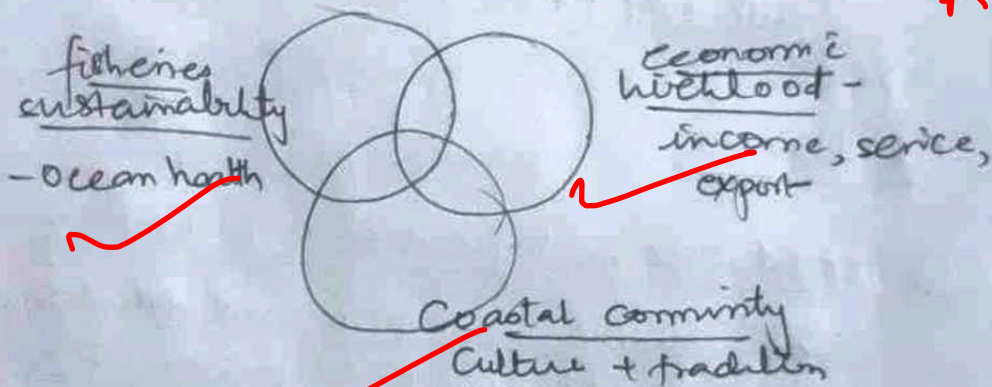 fisheries
sustainability
- Ocean health
economic
livelihood -
income, serice,
export
Coastal comminty
Culture + tradition